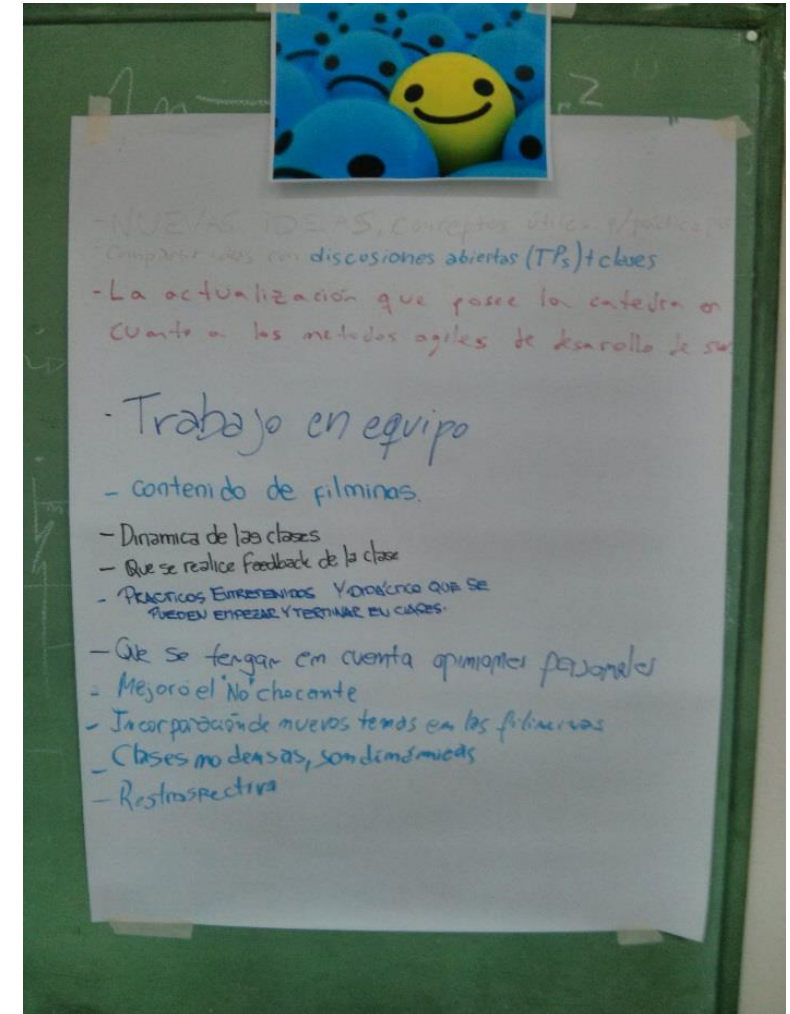 - NUEVAS IDEAS, conceptos útiles p/
Compartir ideas con discusiones abiertas (TPs) + clases
- La actualización que posee la catedra en
cuanto a los metodos agiles de desarollo de sw
- Trabajo en equipo
- contenido de filminas.
- Dinamica de las clases
- Que se realice Feedback de la clase
- PRACTICOS ENTRETENIDOS Y DIDÁCTICO QUE SE
PUEDEN EMPEZAR Y TERMINAR EN CLASES.
- Que se tengan em cuenta opiniones personales
- Mejoró el "No" chocante
- Incorporación de nuevos temas em las filiminas
- Clases no densas, son dinámicas
- Restrospectiva